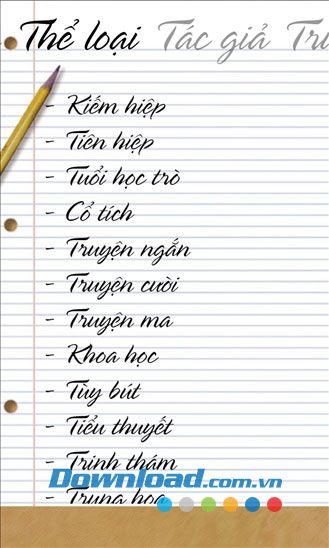 Thể loại Tác giả Tru
- Kiếm hiệp
- Tiên hiệp
- Tuổi học trò
- Cổ tích
- Truyện ngắn
- Truyện cười
- Truyện ma
- Khoa học
- Tùy bút
- Tiểu thuyết
- Trinh thám
Download.com.vn
- Trung hoa